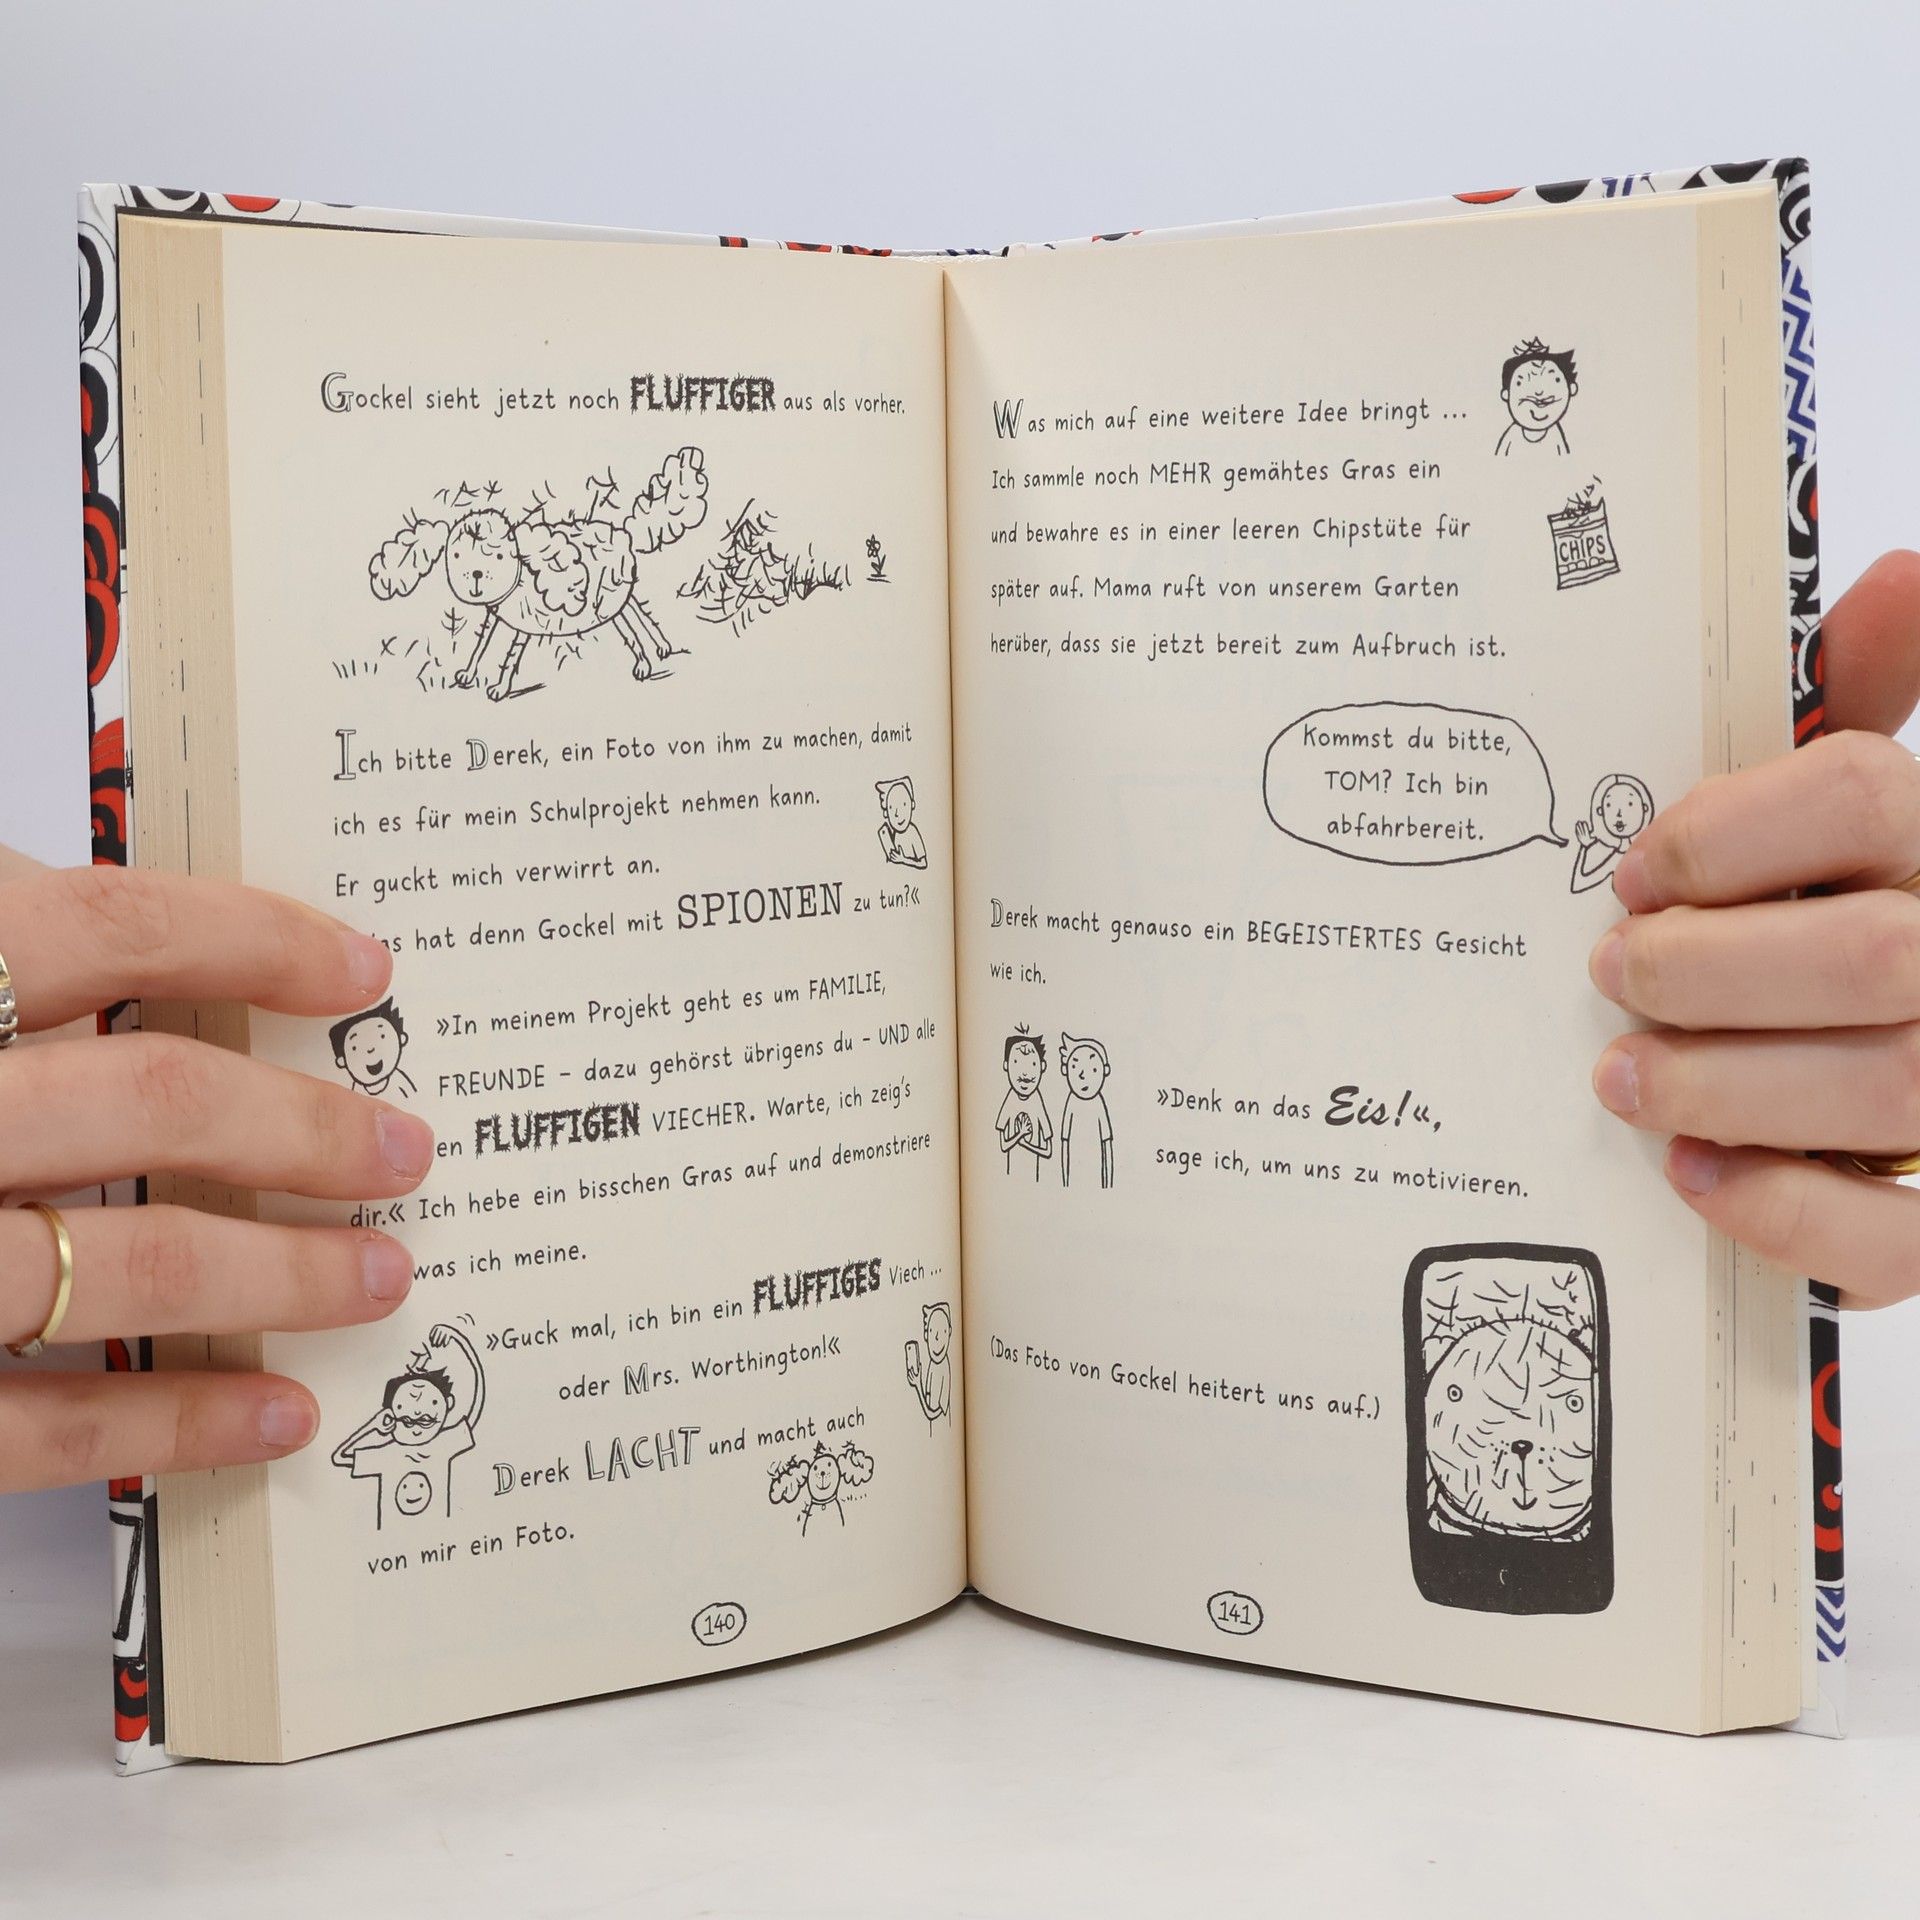 Gockel sieht jetzt noch FLUFFIGER aus als vorher.
Ich bitte Derek, ein Foto von ihm zu machen, damit
ich es für mein Schulprojekt nehmen kann.
Er guckt mich verwirrt an.
hat denn Gockel mit SPIONEN zu tun?«
»In meinem Projekt geht es um FAMILIE,
FREUNDE – dazu gehörst übrigens du – UND alle
FLUFFIGEN VIECHER. Warte, ich zeig's
dir.« Ich hebe ein bisschen Gras auf und demonstriere
was ich meine.
»Guck mal, ich bin ein FLUFFIGES Viech ...
oder Mrs. Worthington!«
Derek LACHT und macht auch
von mir ein Foto.
140
Was mich auf eine weitere Idee bringt ...
Ich sammle noch MEHR gemähtes Gras ein
und bewahre es in einer leeren Chipstüte für
später auf. Mama ruft von unserem Garten
herüber, dass sie jetzt bereit zum Aufbruch ist.
CHIPS
Kommst du bitte,
TOM? Ich bin
abfahrbereit.
Derek macht genauso ein BEGEISTERTES Gesicht
wie ich.
»Denk an das Eis!«,
sage ich, um uns zu motivieren.
(Das Foto von Gockel heitert uns auf.)
141